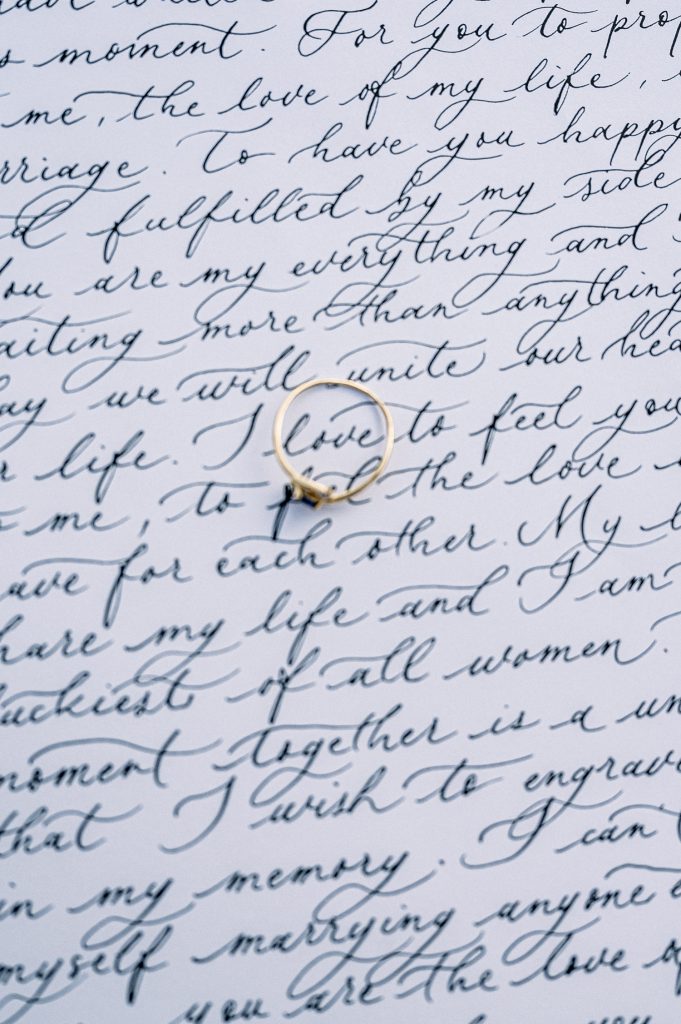 moment. For you to prop
me, the love of my life,
rriage. To have you happy
d fulfilled by my side
You are my everything and
aiting more than anything
ay we will unite our hea
r life. I love to feel you
me, to feel the love
ave for each other. My l
hare my life and I am
luckiest of all women.
moment together is a un
that I wish to engrave
in my memory. I can't
myself marrying anyone
you are the love of